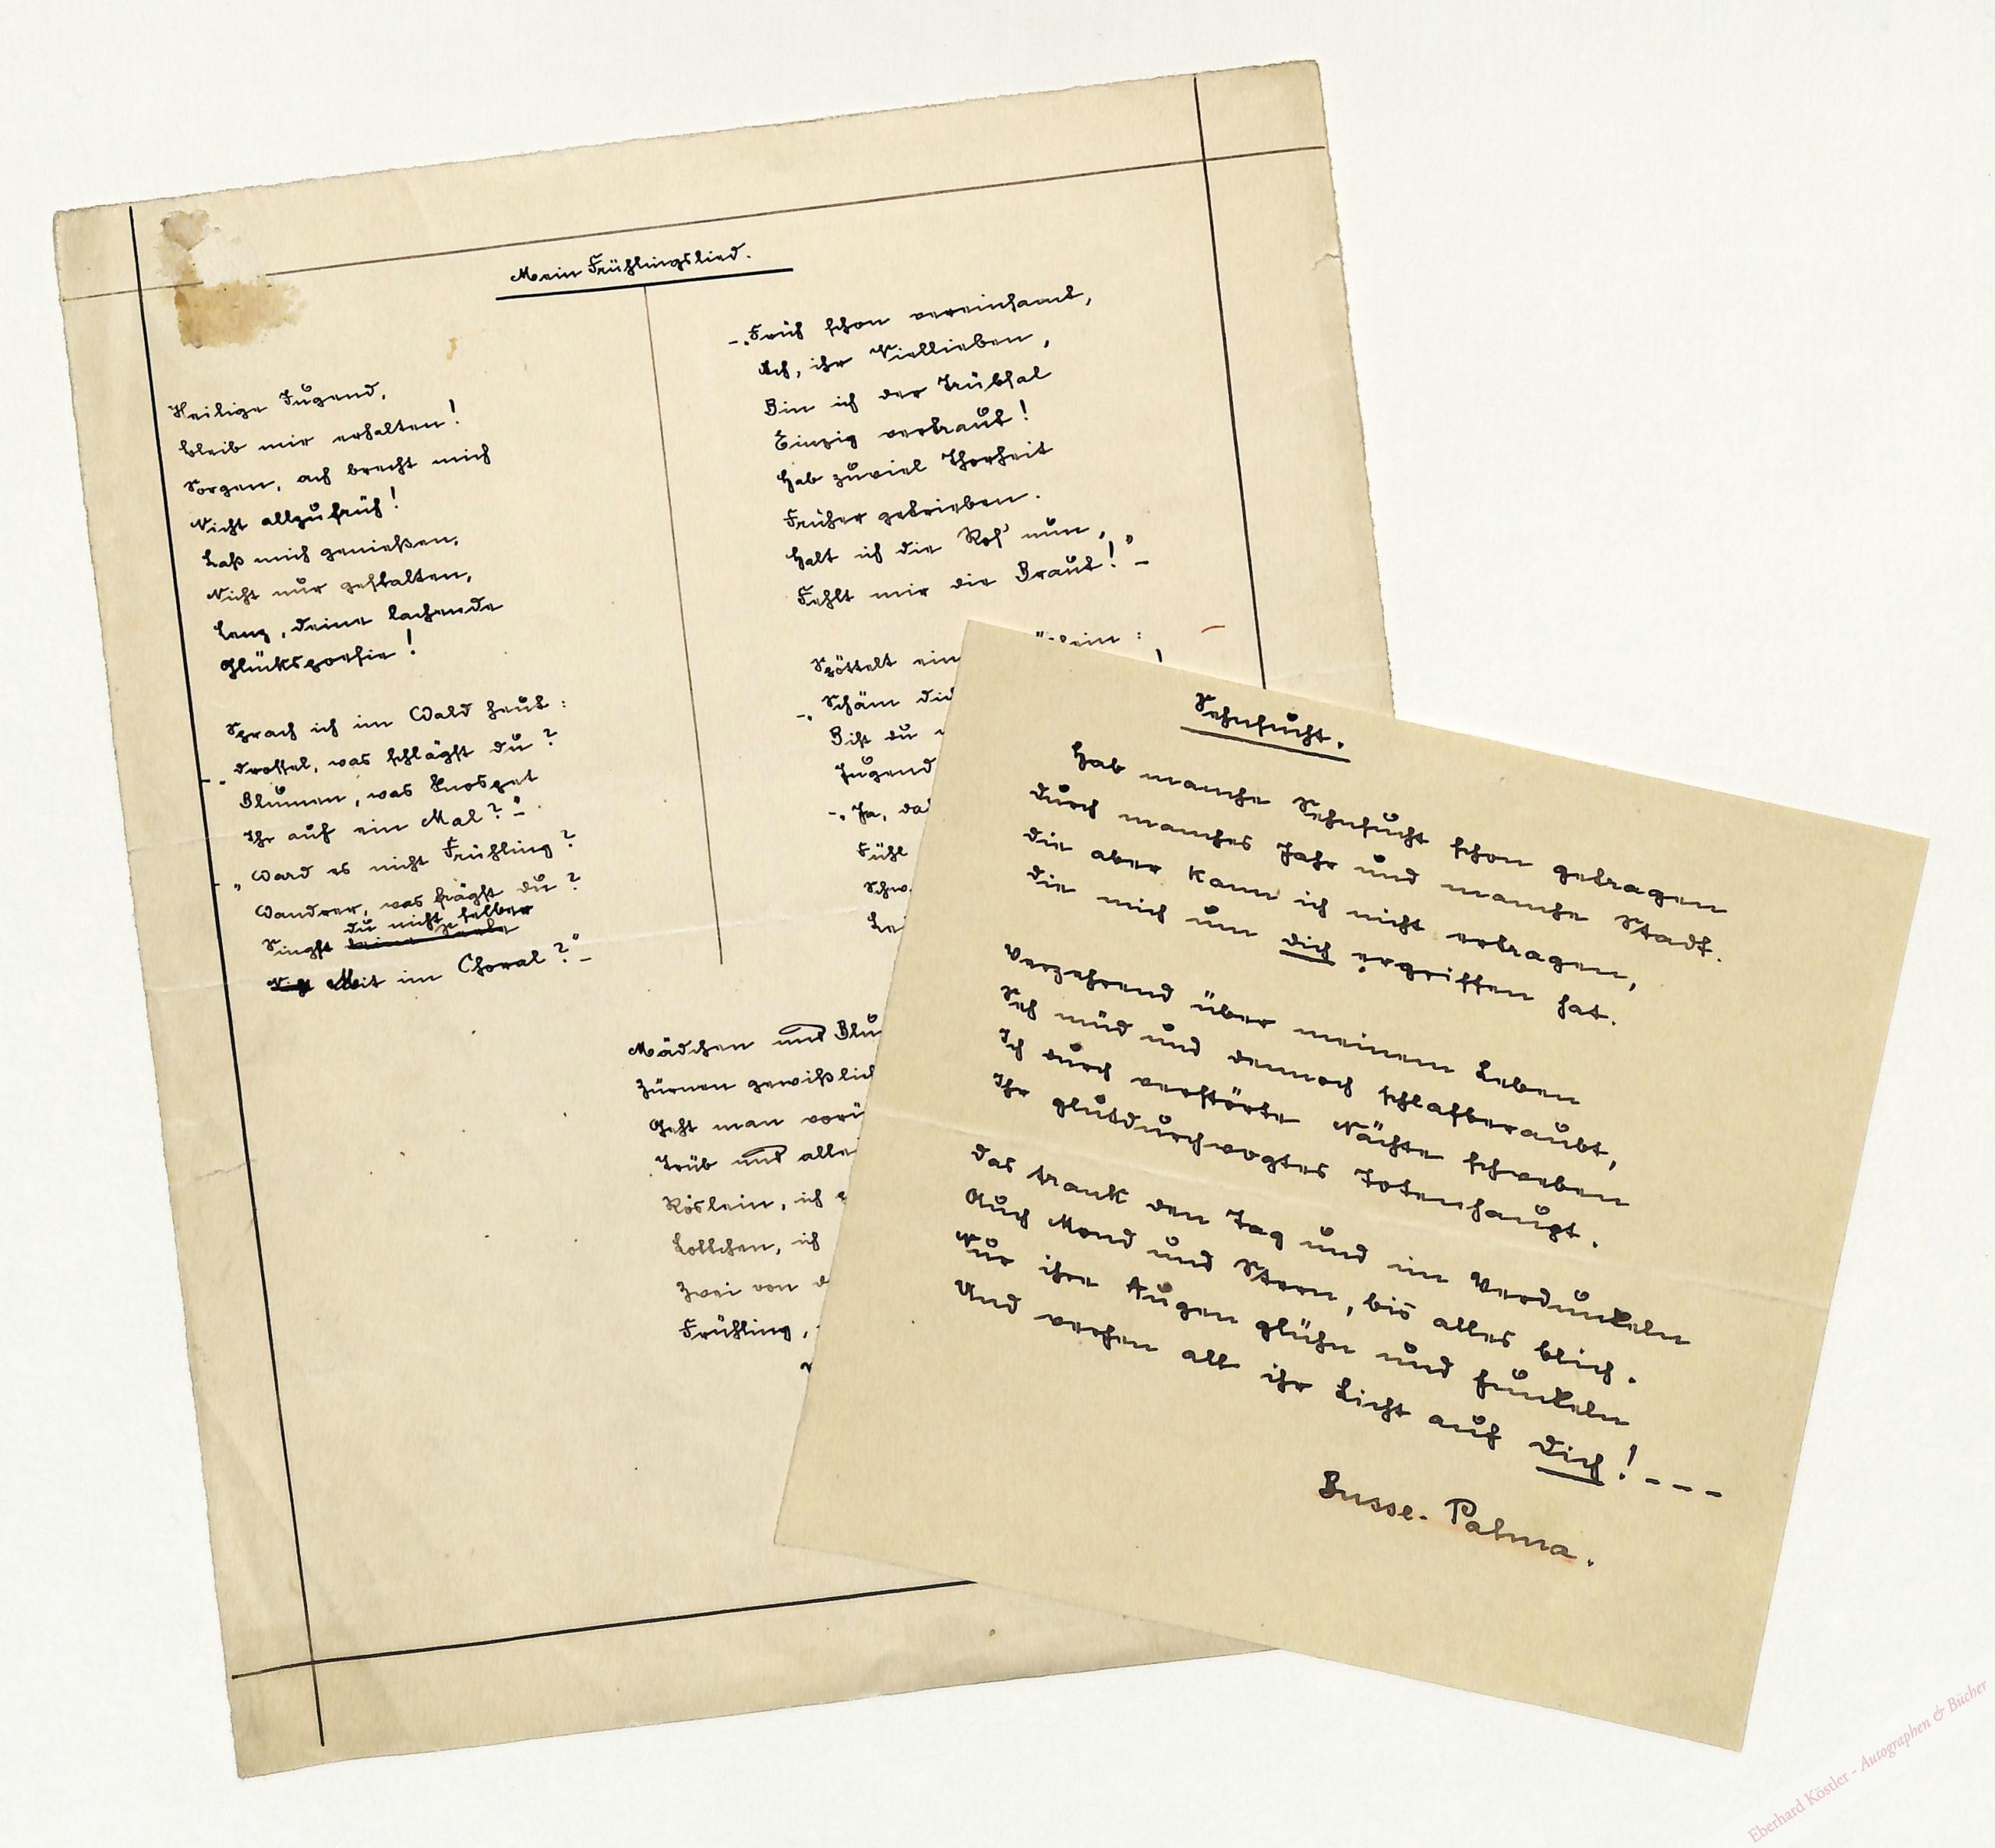 Mein Frühlingslied.
Heilige Jugend,
bleib mir erhalten!
Sorgen, ach brecht mich
Nicht allzufrüh!
Laß mich genießen,
Nicht nur gestalten,
Lenz, deine lachende
Glückspoesie!
Sprach ich im Wald heut:
–„Drossel, was schlägst du?
Blumen, was knospet
Ihr auf ein Mal?"–.
–„Ward es nicht Frühling?
Wandrer, was frägst du?
du nicht selber
Singst deine Seele
Mit im Choral?"–
–„Früh schon vereinsamt,
Ach, ihr Viellieben,
Bin ich der Trübsal
Einzig vertraut!
Hab zuviel Thorheit
Früher getrieben.
Halt ich die Ros' nun,
Fehlt mir die Braut!"–
Spöttelt ein
–„Schäm dich
Bist du
Jugend
–„Ja, da
Fühl
Schw
Mädchen und Blu
Zürnen gewißlich
Geht man vorü
Trüb und alle
Röslein, ich
Lottchen, ich
Zwei von
Frühling,
Sehnsucht.
Hab manche Sehnsucht schon getragen
Durch manches Jahr und manche Stadt.
Die aber kann ich nicht ertragen,
Die mich um dich ergriffen hat.
Verzehrend über meinem Leben
Seh müd und dennoch schlafberaubt,
Ich durch verstörte Nächte schweben
Ihr glutdurchwogtes Totenhaupt.
Das trank den Tag und im Verdunkeln
Auch Mond und Stern, bis alles blich.
Nur ihre Augen glühn und funkeln
Und werfen all ihr Licht auf dich!---
Busse-Palma.
Eberhard Köstler - Autographen & Bücher